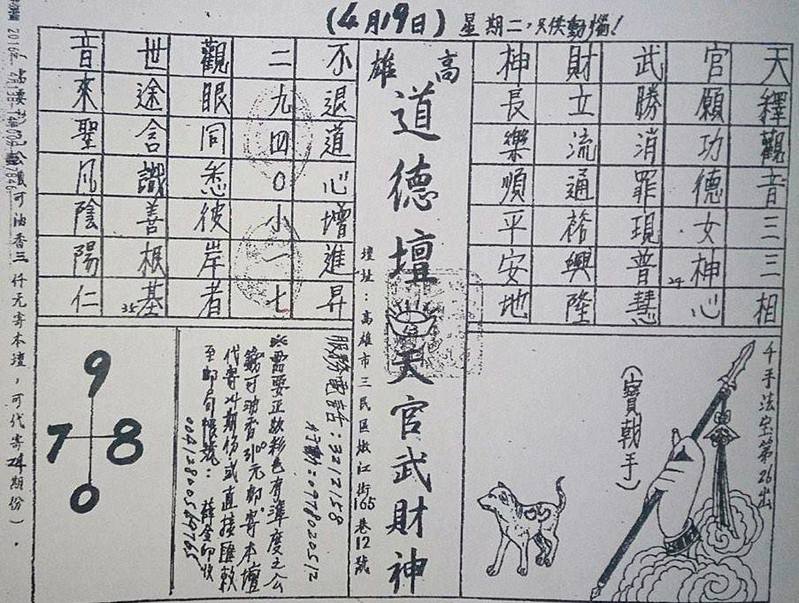 (4月19日) 星期二，
天釋觀音三三相
官願功德女神心
24
武勝消罪現普慧
財立流通格興隆
神長樂順平安地
高雄
道德壇
天官武財神
壇址：高雄市三民區嫩江街165巷12號
不退道心增進昇
二九四0小一七
觀眼同悉彼岸者
世途含識善根基
35
音來聖凡陰陽仁
千手法宝第26出
(寶戟手)
服務電話：3212158
行動：0978020512
※需要正款彩色有準度之公
籤可油香3100元郵寄本壇
代寄24期份或直接匯款
至郵局帳號：薛金印收
9
7 8
0
可油香三仟元寄本壇，可代寄24期份)．